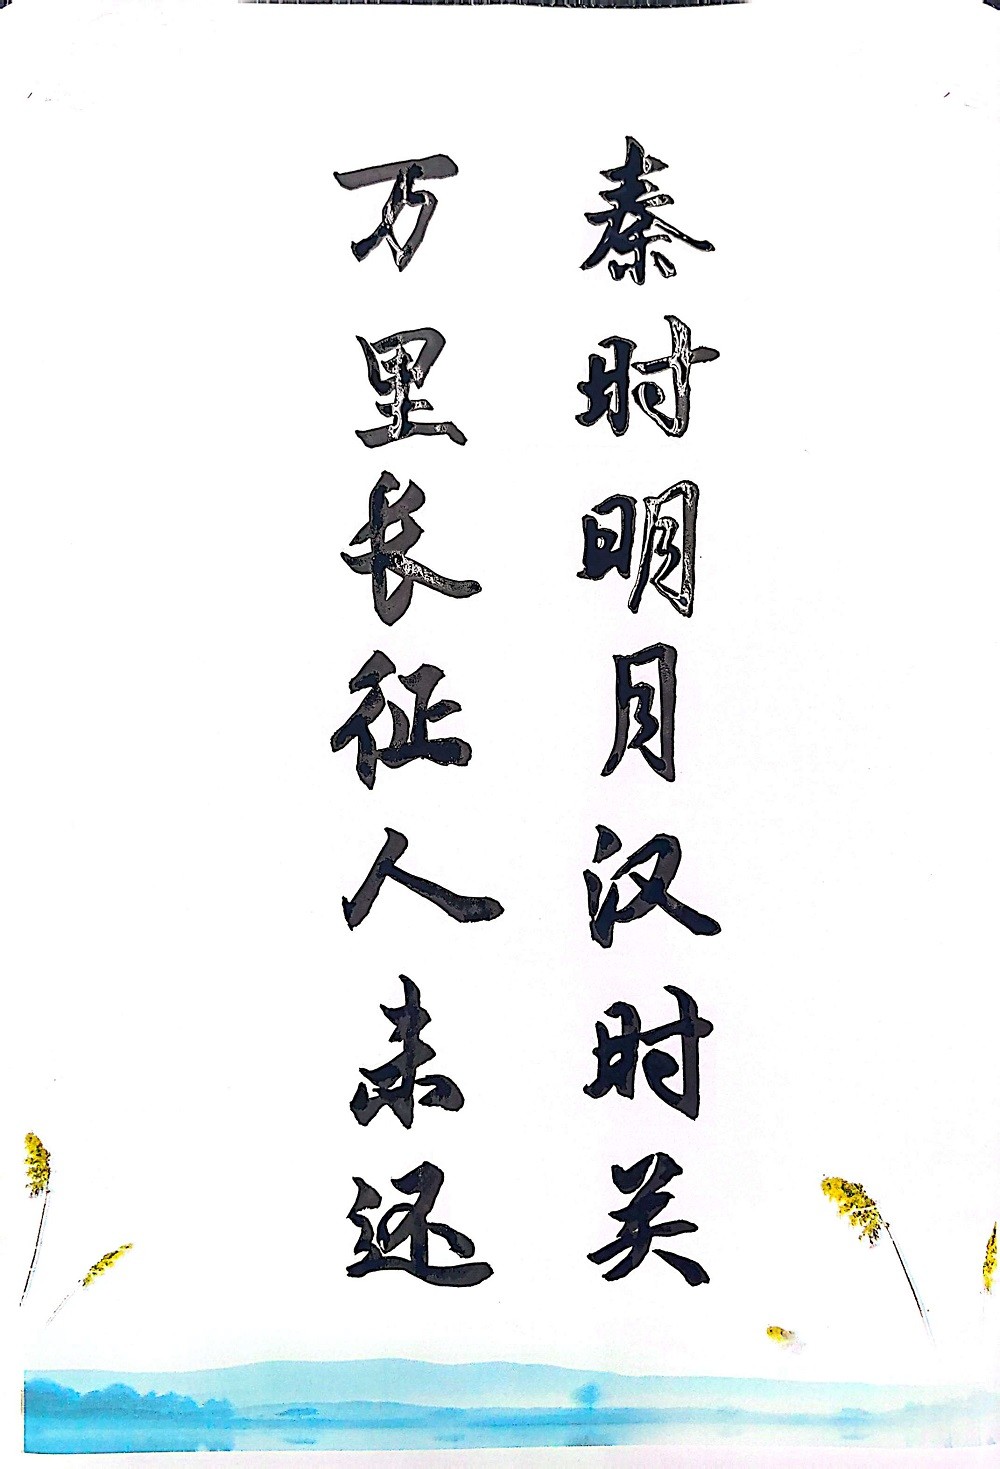 秦时明月汉时关
万里长征人未还